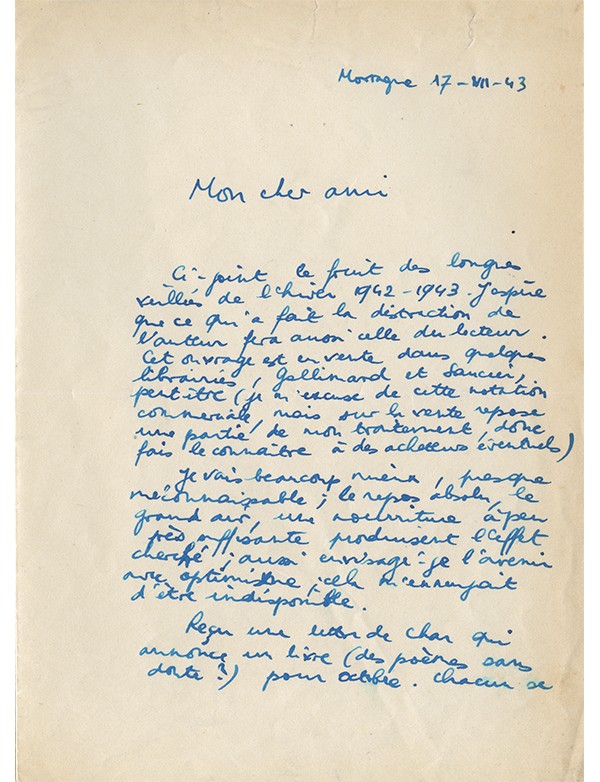 Mortagne 17-VII-43
Mon cher ami
Ci-joint le fruit des longues
veillées de l'hiver 1942-1943. J'espère
que ce qui a fait la distraction de
l'auteur fera aussi celle du lecteur.
Cet ouvrage est en vente dans quelques
librairies, Gallimard et Saucier,
peut-être (je m'excuse de cette notation
commerciale, mais sur la vente repose
une partie de mon traitement, donc
fais le connaître à des acheteurs éventuels)
Je vais beaucoup mieux, presque
méconnaissable; le repos absolu, le
grand air, une nourriture à peu
près suffisante produisent l'effet
cherché; aussi envisage-je l'avenir
avec optimisme; cela m'ennuyait
d'être indisponible.
Reçu une lettre de Char qui
annonce un livre (des poèmes sans
doute?) pour octobre. Chacun se